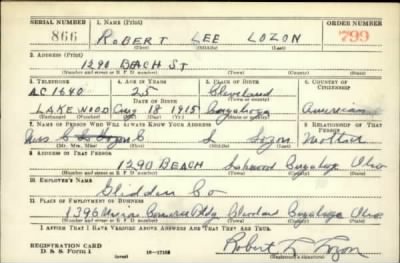 SERIAL NUMBER 1. NAME (Print) ORDER NUMBER
866 ROBERT LEE LOZON 799
(First) (Middle) (Last)
2. ADDRESS (Print)
1290 BEACH ST
(Number and street or R. F. D. number) (Town) (County) (State)
3. TELEPHONE 4. AGE IN YEARS 5. PLACE OF BIRTH 6. COUNTRY OF CITIZENSHIP
AC 1640 25 Cleveland
DATE OF BIRTH
LAKEWOOD Aug 18 1915 Cuyahoga American
(Exchange) (Number) (Mo.) (Day) (Yr.) (State or country)
7. NAME OF PERSON WHO WILL ALWAYS KNOW YOUR ADDRESS 8. RELATIONSHIP OF THAT PERSON
Mrs C Lozon Mother
(Mr., Mrs., Miss) (First) (Middle) (Last)
9. ADDRESS OF THAT PERSON
1290 BEACH Lakewood Cuyahoga Ohio
(Number and street or R. F. D. number) (Town) (County) (State)
10. EMPLOYER'S NAME
Glidden Co
11. PLACE OF EMPLOYMENT OR BUSINESS
1396 Union Commerce Bldg Cleveland Cuyahoga Ohio
(Number and street or R. F. D. number) (Town) (County) (State)
I AFFIRM THAT I HAVE VERIFIED ABOVE ANSWERS AND THAT THEY ARE TRUE.
REGISTRATION CARD
D. S. S. Form 1 (over) 16—17105 Robert L. Lozon
(Registrant's signature)